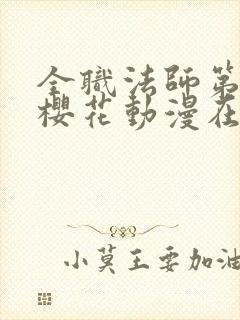 全職法師第
櫻花動漫在
小莫王要加油